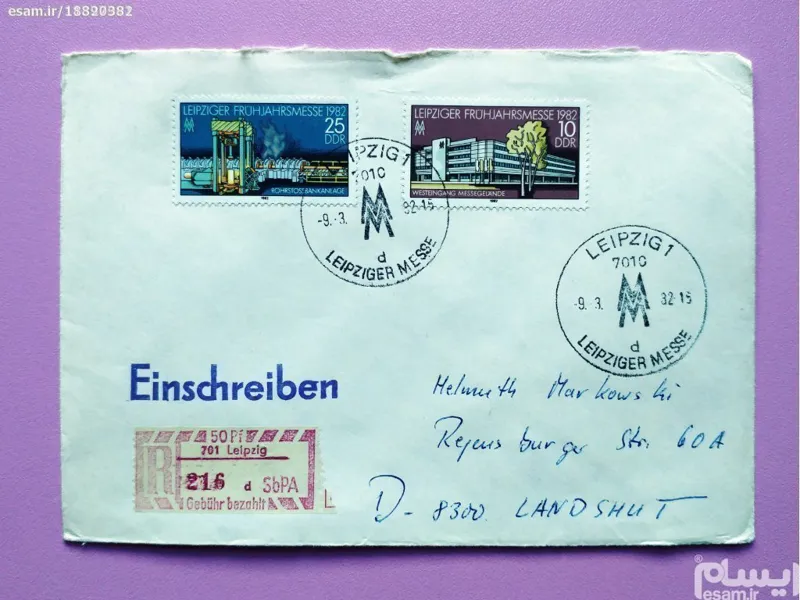 esam.ir/18820382
LEIPZIGER FRÜHJAHRSMESSE 1982
25
DDR
ROHRSTOSSBANKANLAGE
1982
LEIPZIGER FRÜHJAHRSMESSE 1982
10
DDR
WESTEINGANG MESSEGELÄNDE
1982
LEIPZIG 1
7010
-9.-3. 82-15
d
LEIPZIGER MESSE
LEIPZIG 1
7010
-9.-3. 82-15
d
LEIPZIGER MESSE
Einschreiben
50 Pf
701 Leipzig
R
216 d SbPA
Gebühr bezahlt
L
Helmuth Markowski
Regensburger Str. 60A
D-8300 LANDSHUT
ایسام
esam.ir